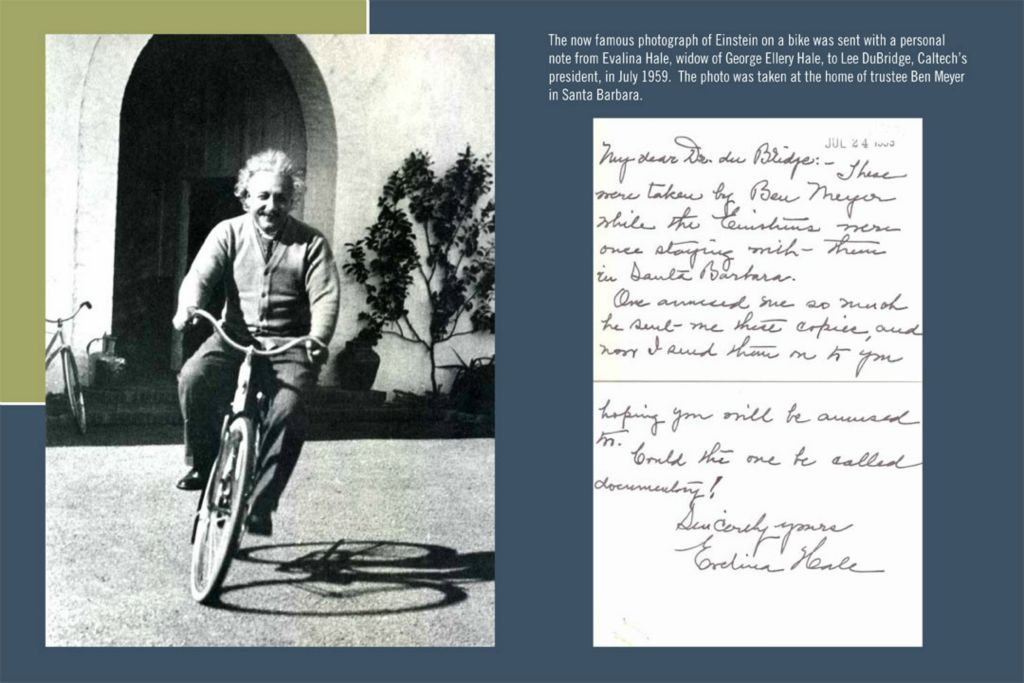 The now famous photograph of Einstein on a bike was sent with a personal
note from Evalina Hale, widow of George Ellery Hale, to Lee DuBridge, Caltech's
president, in July 1959.  The photo was taken at the home of trustee Ben Meyer
in Santa Barbara.
JUL 24
My dear Dr. du Bridge:- These
were taken by Ben Meyer
while the Einsteins were
once staying with them
in Santa Barbara.
One amused me so much
he sent me these copies, and
now I send them on to you
hoping you will be amused
too.  Could this one be called
documentary!
Sincerely yours
Evelina Hale